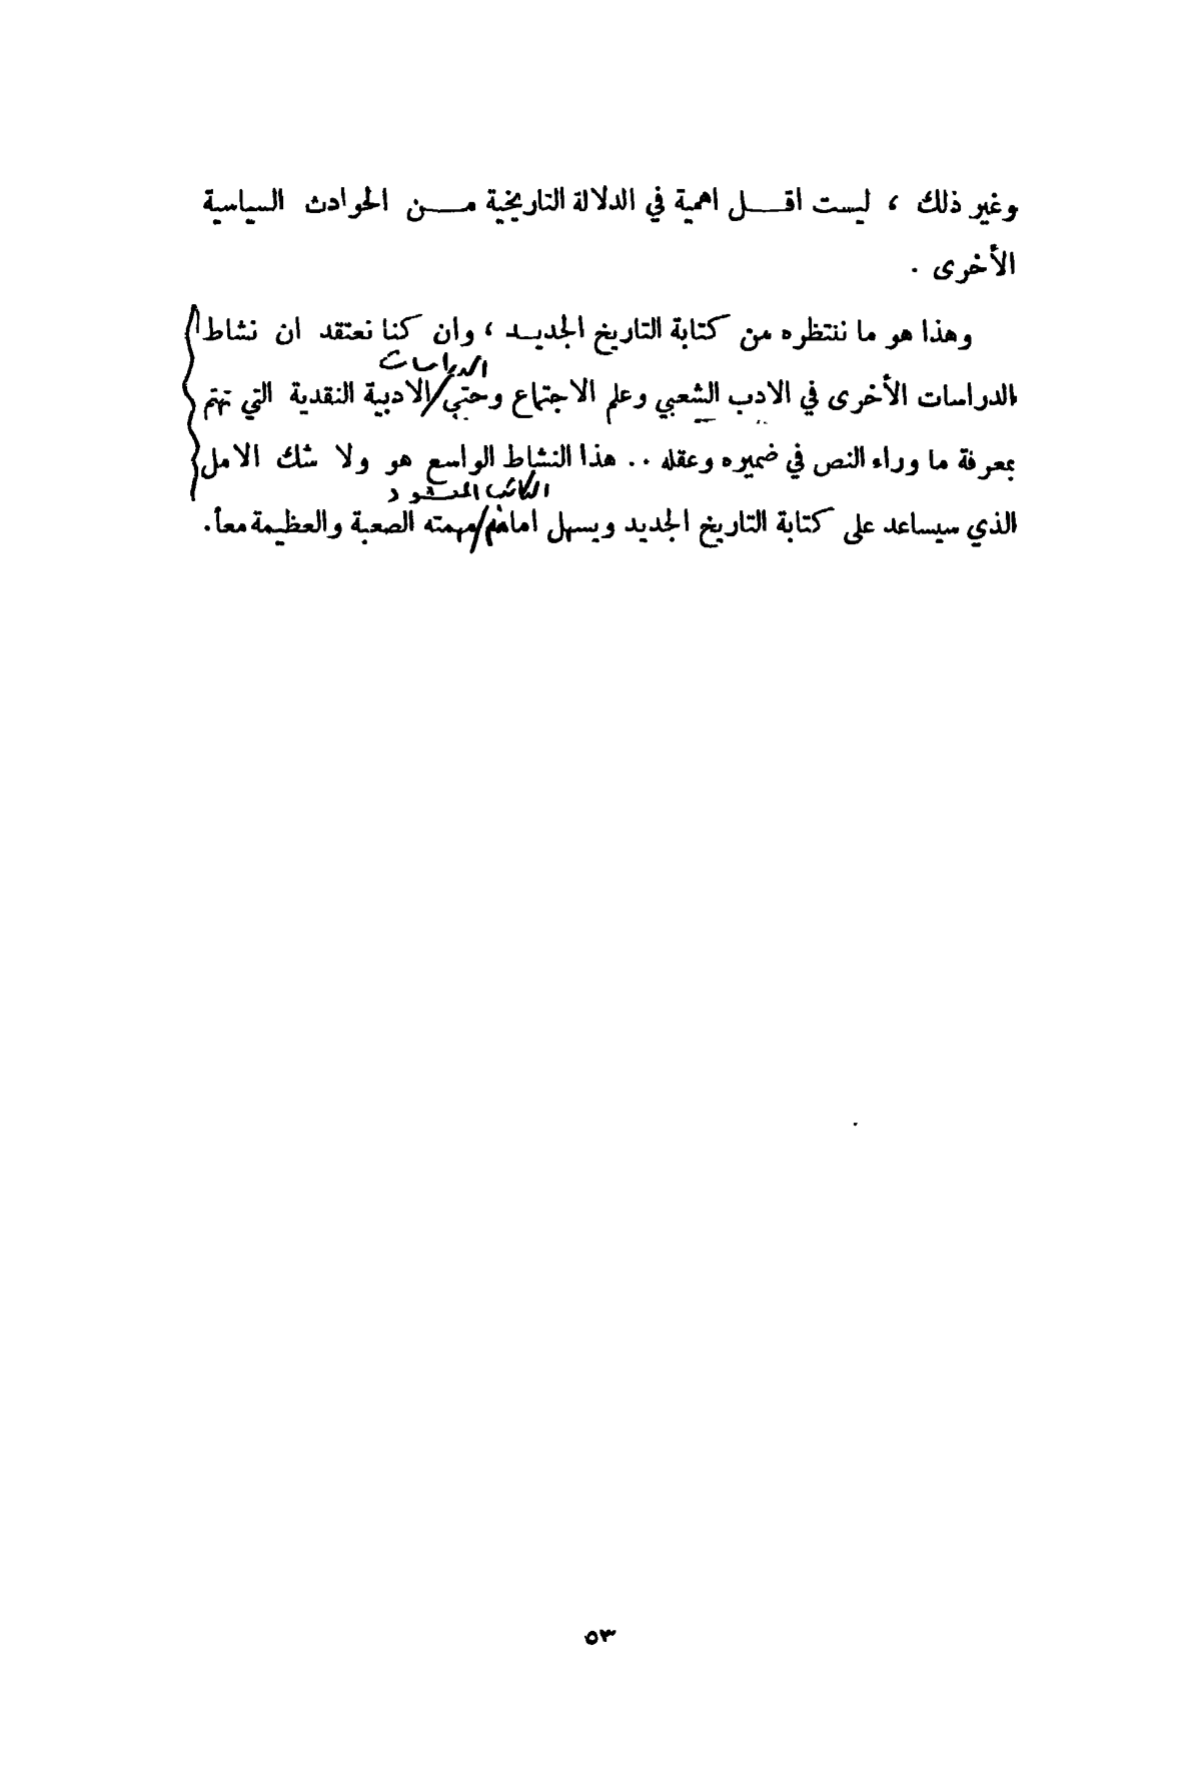 وغير ذلك ، ليست اقل اهمية في الدلالة التاريخية من الحوادث السياسية
الأخرى .
وهذا هو ما ننتظره من كتابة التاريخ الجديد ، وان كنا نعتقد ان نشاط
الدراسات
الدراسات الأخرى في الادب الشعبي وعلم الاجتماع وحتى/الادبية النقدية التي تهتم
بمعرفة ما وراء النص في ضميره وعقله .. هذا النشاط الواسع هو ولا شك الامل
الكاتب المنشود
الذي سيساعد على كتابة التاريخ الجديد ويسهل امام/مهمته الصعبة والعظيمة معاً.
٥٣